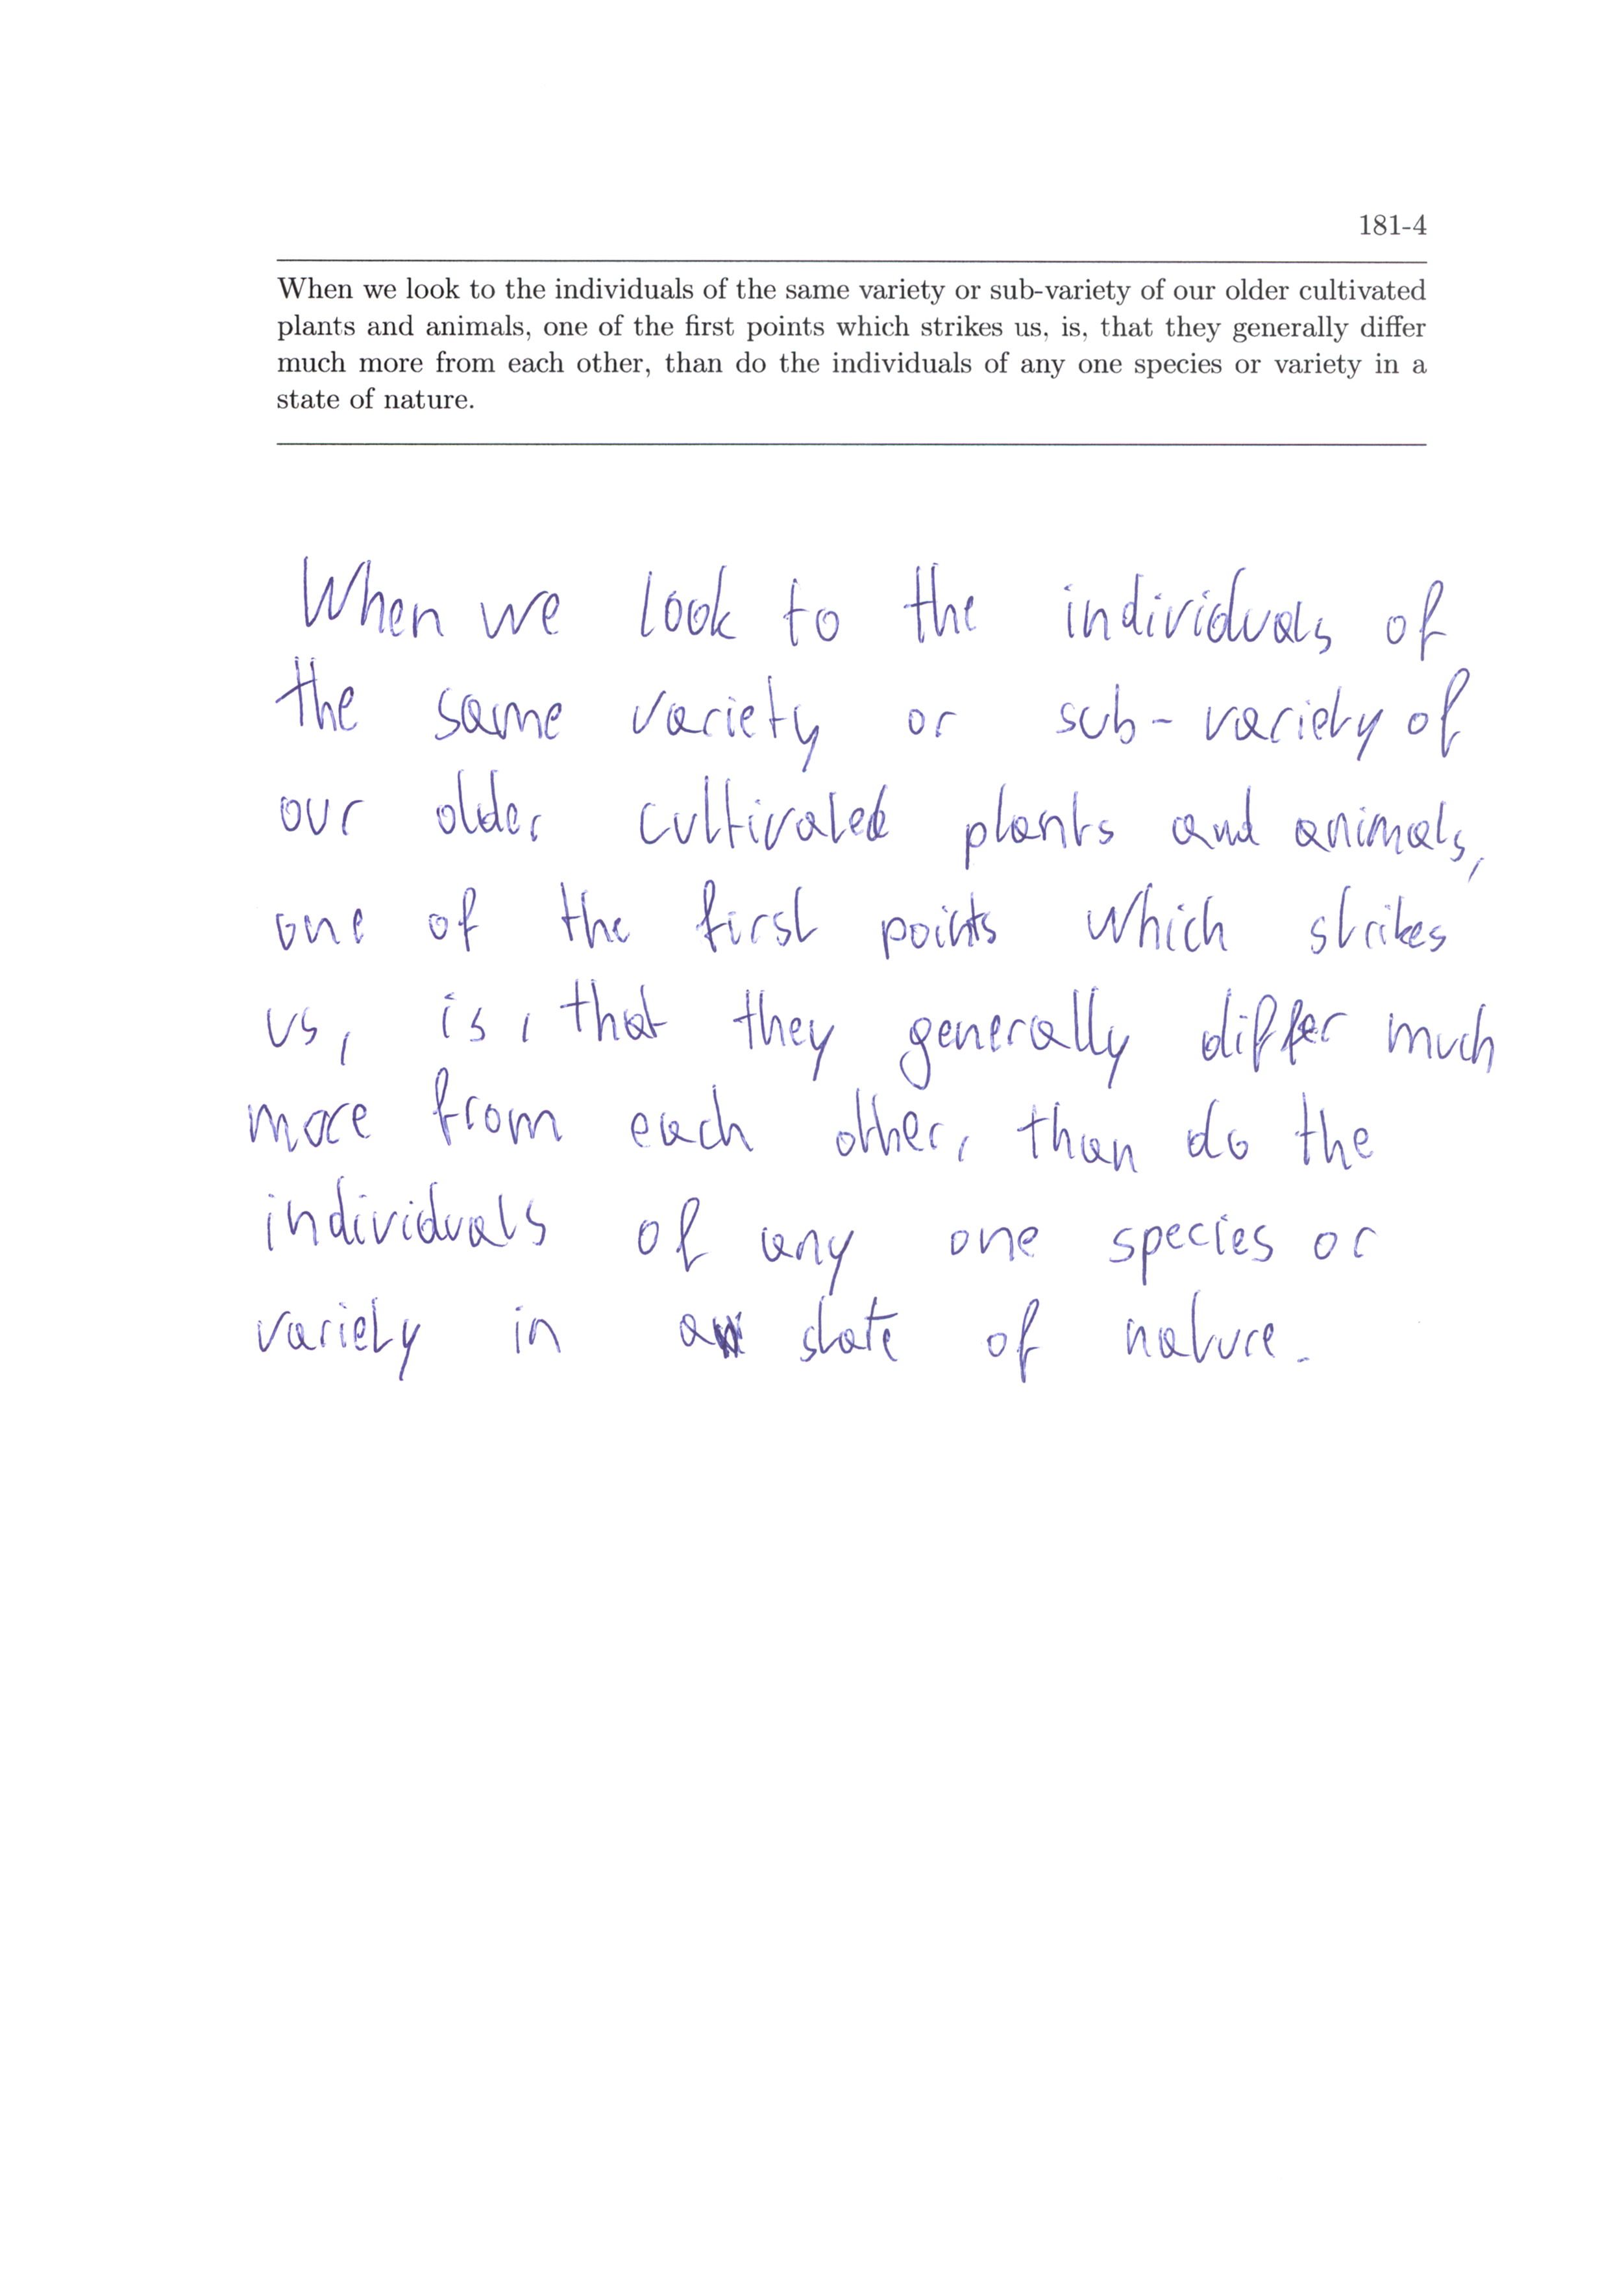 181-4
When we look to the individuals of the same variety or sub-variety of our older cultivated
plants and animals, one of the first points which strikes us, is, that they generally differ
much more from each other, than do the individuals of any one species or variety in a
state of nature.
When we look to the individuals of
the same variety or sub-variety of
our older cultivated plants and animals,
one of the first points which strikes
us, is, that they generally differ much
more from each other, than do the
individuals of any one species or
variety in a state of nature.